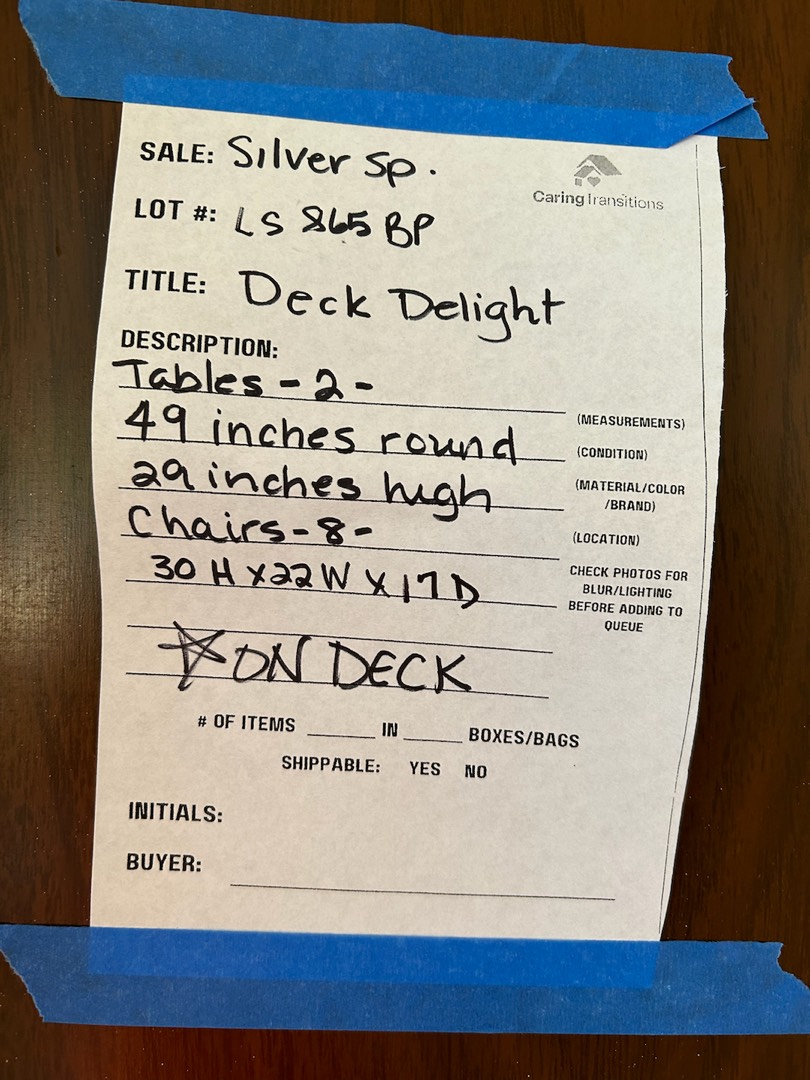 SALE: Silver Sp.
CaringTransitions
LOT #: LS 865 BP
TITLE: Deck Delight
DESCRIPTION:
Tables - 2 -
(MEASUREMENTS)
49 inches round
(CONDITION)
29 inches high
(MATERIAL/COLOR
/BRAND)
Chairs - 8 -
(LOCATION)
30 H x 22 W x 17 D
CHECK PHOTOS FOR
BLUR/LIGHTING
BEFORE ADDING TO
QUEUE
ON DECK
# OF ITEMS ______ IN ______ BOXES/BAGS
SHIPPABLE: YES NO
INITIALS:
BUYER: